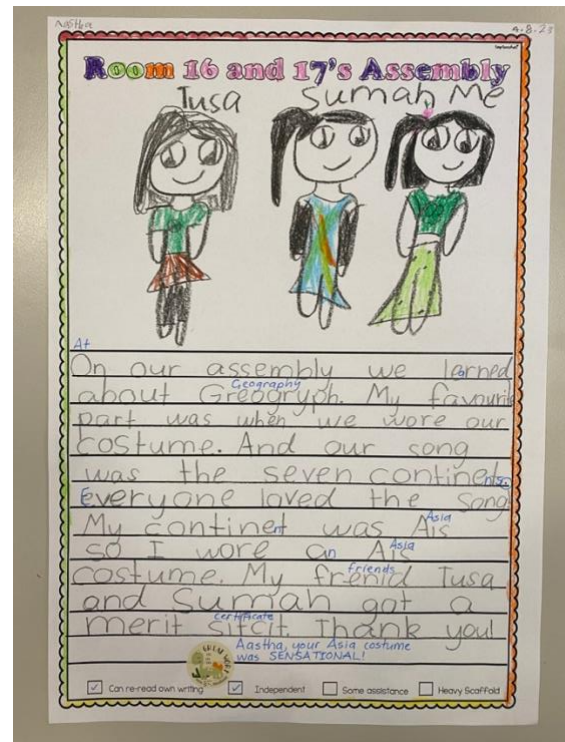 Aastha
4.8.23
Room 16 and 17's Assembly
Tusa Sumah Me
At
On our assembly we larned
Geography
about Greogryph. My favourite
part was when we wore our
costume. And our song
was the seven continents.
Everyone loved the song.
Asia
My continent was Ais
Asia
so I wore an Ais
friends
costume. My frenid Tusa
and Sumah got a
certificate
merit sitcit. Thank you!
Aastha, your Asia costume
was SENSATIONAL!
Can re-read own writing Independent Some assistance Heavy Scaffold